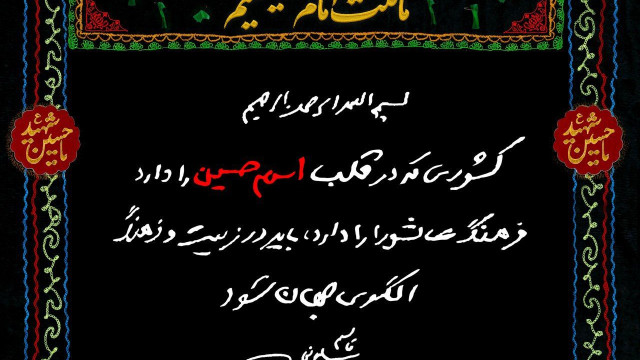 ما ملت امام حسینیم
بسم الله الرحمن الرحیم
کشوری که در قلب اسم حسین را دارد
فرهنگ عاشورا را دارد، باید در تربیت و فرهنگ
الگوی جهان شود
قاسم سلیمانی
حسین شهید
حسین شهید